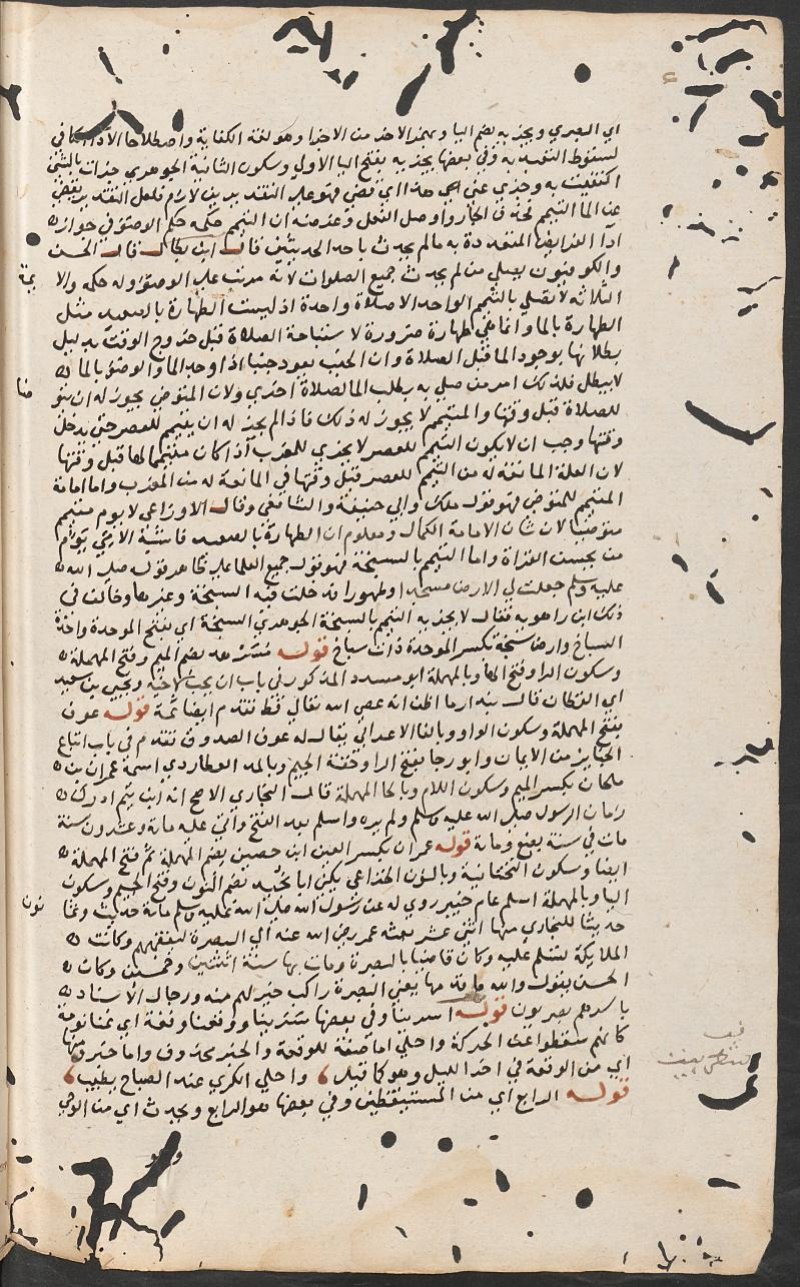 اي البصري ويجزيه بضم اليا وبهمز الاخر من الاجزا وهو لغة الكفاية واصطلاحا الاداالكافي
لسقوط التعبد به وفي بعضها يجزيه بفتح اليا الاولي وسكون الثانية الجوهري جزات بالشئ
اكتفيت به وجزي عني اي هذا اي قضي فهو علي التقديرين لازم فلعل التقدير يقضي
عن الما التيمم حذف الجار واوصل الفعل وغرضه ان التيمم حكمه حكم الوضوء في جواز
ادآ الفرايض المتعددة به مالم يحدث باحد الحدثين قال ابن بطال قال الحسن
والكوفيون يصلي من لم يحدث جميع الصلوات لانه مرتب علي الوضوء وله حكمه والا
الثلاثه لا يصلي بالتيمم الواحد الا صلاة واحدة اذ ليست الطهارة بالصعيد مثل
الطهارة بالما وانما هي طهارة ضرورة لاستباحة الصلاة قبل خروج الوقت بدليل
بطلانها بوجود الما قبل الصلاة وان الجنب يعود جنبا اذا وجد الما والوضوء بالما
لا يبطل فلذلك امر من صلي به بطلب الما لصلاة اخري ولان المتوضي يجوز له ان يتو
للصلاة قبل وقتها والمتيمم لا يجوز له ذلك فاذا لم يجز له ان يتيمم للعصر حتي يدخل
وقتها وجب ان لا يكون التيمم للعصر لا يجزي للمغرب اذ كان متيمما لها قبل وقتها
لان العلة المانعة له من التيمم للعصر قبل وقتها هي المانعة له من المغرب واما امامة
المتيمم للمتوضي فهو قول ملك وابي حنيفة والشافعي وقال الاوزاعي لا يوم متيمم
متوضيا لان شان الامامة الكمال ومعلوم ان الطهارة بالصعيد ناقصة الامي يوم
من يحسن القراة واما التيمم بالسبخة فهو قول جميع العلما علي ظاهر قوله صلي الله
عليه وسلم جعلت لي الارض مسجدا وطهورا فدخلت فيه السبخة وغيرها وخالف في
ذلك ابن راهويه فقال لا يجزيه التيمم بالسبخة الجوهري السبخة اي بفتح الموحدة واحدة
السباخ وارض سبخة بكسر الموحدة ذات سباخ قوله مسرهد بضم الميم وفتح المهملة
وسكون الرا وفتح الها وبالمهملة ابو مسدد المذكور في باب ان يحب لاخيه ويحيي بن سعيد
اي القطان قال بندار ما اظن انه عصي الله تعالي قط تقدم ايضا ثمة قوله عوف
بفتح المهملة وسكون الواو وبالفا الاعرابي يقال له عوف الصدوق تقدم في باب اتباع
الجنايز من الايمان وابو رجا بفتح الرا وخفة الجيم وبالمد العطاردي اسمه عمران بن
ملحان بكسر الميم وسكون اللام وبالحا المهملة قال البخاري الاصح انه ابن تيم ادرك
زمان الرسول صلي الله عليه وسلم ولم يره واسلم بعد الفتح واتي عليه مائة وعشرون سنة
مات في سنة بضع ومائة قوله عمران بكسر العين ابن حصين بضم المهملة ثم فتح المهملة
ايضا وسكون التحتانية وبالنون الخزاعي يكني ابا نجيد بضم النون وفتح الجيم وسكون
اليا وبالمهملة اسلم عام خيبر روي له عن رسول الله صلي الله عليه وسلم مائة حديث وثما
حديثا للبخاري منها اثني عشر بعثه عمر رضي الله عنه الي البصرة ليفقههم وكانت
الملايكة تسلم عليه وكان قاضيا بالبصرة ومات بها سنة اثنتين وخمسين وكان
الحسن يقول والله ما قدمها يعني البصرة راكب خير لهم منه ورجال الاسناد
باسرهم بصريون قوله اسرينا وفي بعضها سرينا ووقعنا وقعة اي نمنا نومة
كانهم سقطوا عن الحركة واحلي اما صفة للوقعة والخبر محذوف واما خبر منها
اي من الوقعة في اخر الليل وهو كما قيل واحلي الكري عند الصباح يطيب
قوله الرابع اي من المستيقظين وفي بعضها هو الرابع ويحدث اي من الوحي
يمة
ضا
نون